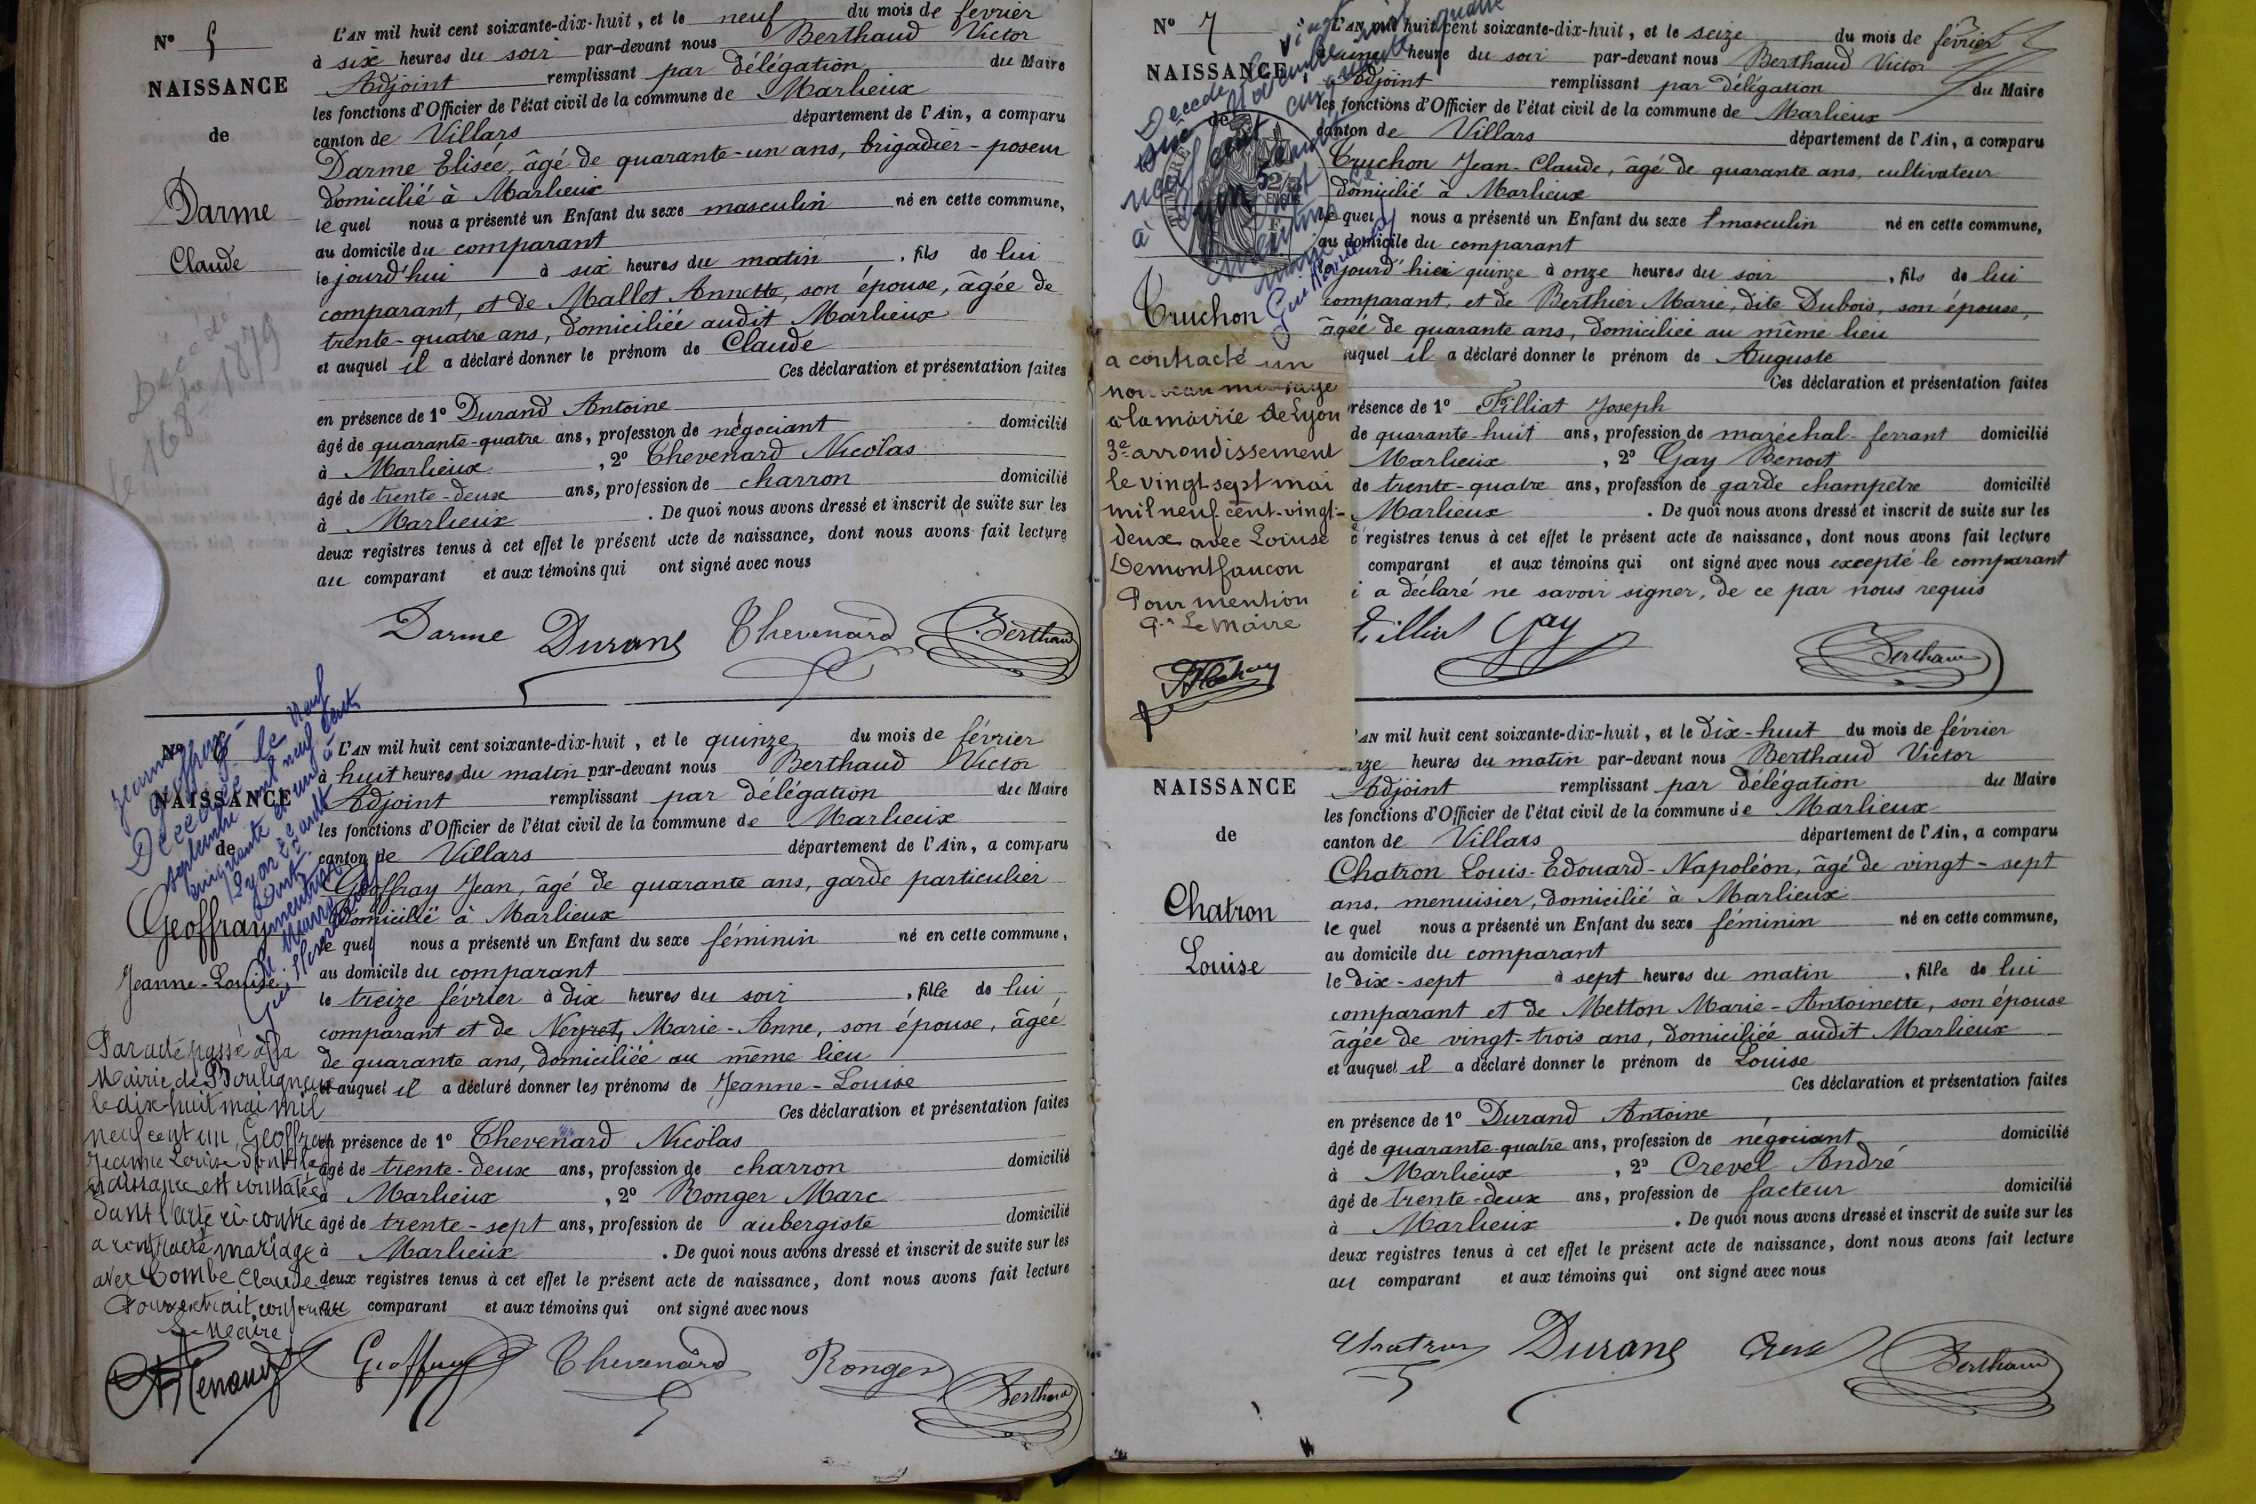 N° 5
NAISSANCE
de
Darme
Claude
L'AN mil huit cent soixante-dix-huit, et le neuf du mois de février
à six heures du soir par-devant nous Berthaud Victor
Adjoint remplissant par délégation du Maire
les fonctions d'Officier de l'état civil de la commune de Marlieux
canton de Villars département de l'Ain, a comparu
Darme Elisée, âgé de quarante-un ans, brigadier-poseur
domicilié à Marlieux
le quel nous a présenté un Enfant du sexe masculin né en cette commune,
au domicile du comparant
le jourd'hui à six heures du matin, fils de lui
comparant, et de Mallet Annette, son épouse, âgée de
trente-quatre ans, domiciliée audit Marlieux
et auquel il a déclaré donner le prénom de Claude
Ces déclaration et présentation faites
en présence de 1° Durand Antoine
âgé de quarante-quatre ans, profession de négociant domicilié
à Marlieux, 2° Thevenard Nicolas
âgé de trente-deux ans, profession de charron domicilié
à Marlieux. De quoi nous avons dressé et inscrit de suite sur les
deux registres tenus à cet effet le présent acte de naissance, dont nous avons fait lecture
au comparant et aux témoins qui ont signé avec nous
Darme Durand Thevenard Berthaud
Décédé
le 16 8bre 1879
N° 6
NAISSANCE
de
Geoffray
Jeanne-Louise
L'AN mil huit cent soixante-dix-huit, et le quinze du mois de février
à huit heures du matin par-devant nous Berthaud Victor
Adjoint remplissant par délégation du Maire
les fonctions d'Officier de l'état civil de la commune de Marlieux
canton de Villars département de l'Ain, a comparu
Geoffray Jean, âgé de quarante ans, garde particulier
domicilié à Marlieux
le quel nous a présenté un Enfant du sexe féminin né en cette commune,
au domicile du comparant
le treize février à dix heures du soir, fille de lui
comparant et de Neyret, Marie-Anne, son épouse, âgée
de quarante ans, domiciliée au même lieu
et auquel il a déclaré donner les prénoms de Jeanne-Louise
Ces déclaration et présentation faites
en présence de 1° Thevenard Nicolas
âgé de trente-deux ans, profession de charron domicilié
à Marlieux, 2° Ronger Marc
âgé de trente-sept ans, profession de aubergiste domicilié
à Marlieux. De quoi nous avons dressé et inscrit de suite sur les
deux registres tenus à cet effet le présent acte de naissance, dont nous avons fait lecture
au comparant et aux témoins qui ont signé avec nous
Geoffray Thevenard Ronger Berthaud
Jeanne
Geoffray
Décédée le neuf
septembre mil neuf cent
cinquante et un à
Lyon 2e ardt
Par acte passé à la
Mairie de Bouligneux
le dix-huit mai mil
neuf cent un, Geoffray
Jeanne Louise dont la
naissance est constatée
dans l'acte ci-contre
a contracté mariage
avec Combe Claude
Pour extrait conforme
Le Maire
N° 7
NAISSANCE
de
Truchon
L'AN mil huit cent soixante-dix-huit, et le seize du mois de février
à une heure du soir par-devant nous Berthaud Victor
Adjoint remplissant par délégation du Maire
les fonctions d'Officier de l'état civil de la commune de Marlieux
canton de Villars département de l'Ain, a comparu
Truchon Jean-Claude, âgé de quarante ans, cultivateur
domicilié à Marlieux
le quel nous a présenté un Enfant du sexe masculin né en cette commune,
au domicile du comparant
le jourd'hier quinze à onze heures du soir, fils de lui
comparant, et de Berthier Marie, dite Dubois, son épouse,
âgée de quarante ans, domiciliée au même lieu
auquel il a déclaré donner le prénom de Auguste
Ces déclaration et présentation faites
présence de 1° Filliat Joseph
de quarante-huit ans, profession de maréchal-ferrant domicilié
Marlieux, 2° Gay Benoit
de trente-quatre ans, profession de garde champêtre domicilié
Marlieux. De quoi nous avons dressé et inscrit de suite sur les
registres tenus à cet effet le présent acte de naissance, dont nous avons fait lecture
comparant et aux témoins qui ont signé avec nous excepté le comparant
i a déclaré ne savoir signer, de ce par nous requis
Filliat Gay Berthaud
a contracté un
nouveau mariage
à la mairie de Lyon
3e arrondissement
le vingt-sept mai
mil neuf cent-vingt-
deux avec Louise
Demontfaucon
Pour mention
Le Maire
NAISSANCE
de
Chatron
Louise
L'AN mil huit cent soixante-dix-huit, et le dix-huit du mois de février
onze heures du matin par-devant nous Berthaud Victor
Adjoint remplissant par délégation du Maire
les fonctions d'Officier de l'état civil de la commune de Marlieux
canton de Villars département de l'Ain, a comparu
Chatron Louis-Edouard-Napoléon, âgé de vingt-sept
ans, menuisier, domicilié à Marlieux
le quel nous a présenté un Enfant du sexe féminin né en cette commune,
au domicile du comparant
le dix-sept à sept heures du matin, fille de lui
comparant et de Metton Marie-Antoinette, son épouse
âgée de vingt-trois ans, domiciliée audit Marlieux
et auquel il a déclaré donner le prénom de Louise
Ces déclaration et présentation faites
en présence de 1° Durand Antoine
âgé de quarante-quatre ans, profession de négociant domicilié
à Marlieux, 2° Crevel André
âgé de trente-deux ans, profession de facteur domicilié
à Marlieux. De quoi nous avons dressé et inscrit de suite sur les
deux registres tenus à cet effet le présent acte de naissance, dont nous avons fait lecture
au comparant et aux témoins qui ont signé avec nous
Chatron Durand Crevel Berthaud